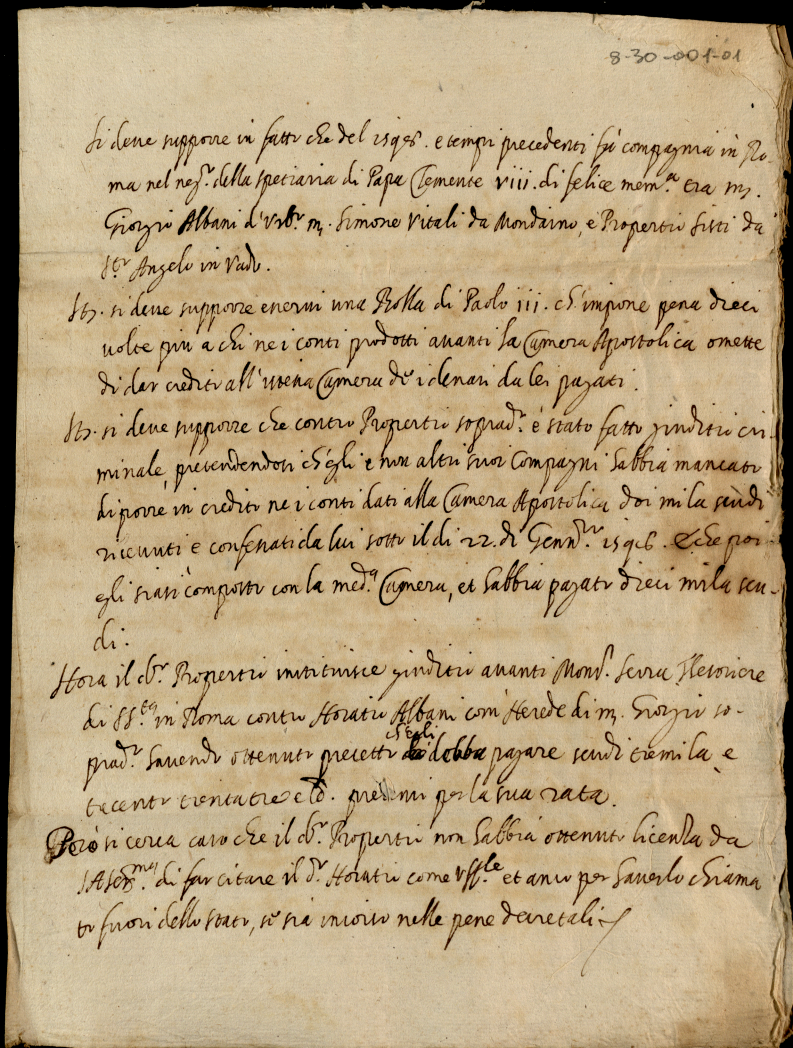 8-30-001-01
Si deve supporre in fatto che del 1596. e tempi precedenti fù compagnia in Ro-
ma nel neg.º della spetiaria di Papa Clemente VIII. di felice mem.ª tra m.
Giorgio Albani d'Urb.º m. Simone Vitali da Mondaino, e Propertio Sisti da
S.tº Angelo in Vado.
It. si deve supporre esservi una Bolla di Paolo III. ch'impone pena dieci
volte più a chi ne i conti prodotti avanti la Camera Apostolica omette
di dar credito all'istessa Camera de i denari da lei pagati.
It. si deve supporre che contro Propertio soprad.º è stato fatto giuditio cri-
minale, pretendendosi ch'egli e non altri suoi Compagni habbia mancato
di porre in credito ne i conti dati alla Camera Apostolica doi mila scudi
ricevuti e confessati da lui sotto il dì 22. di Genn.ro 1596. & che poi
egli siasi composto con la med.ª Camera, et habbia pagato dieci mila scu-
di.
Hora il d.º Propertio instituisce giuditio avanti Mons.r Serra Thesoriere
di SS.tà in Roma contro Horatio Albani com' Herede di m. Giorgio so-
prad.º havendo ottenuto precetto ch'egli debba pagare scudi tremila e
trecento trentatre etc. pretensi per la sua rata.
Però si cerca caso che il d.º Propertio non habbia ottenuto licenza da
S.A.Ser.ma di far citare il d.º Horatio come Uff.le et anco per haverlo chiama
to fuori dello stato, se sia incorso nelle pene decretali